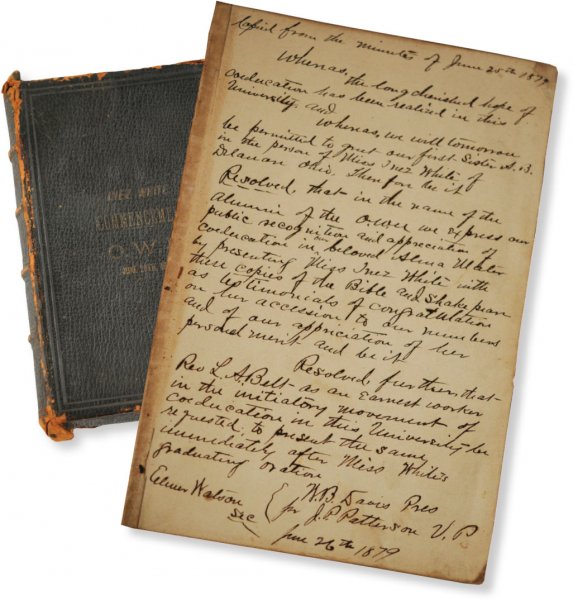 INEZ WHITE
COMMENCEMENT
O. W.
Copied from the minutes of June 25th 1879
Whereas, the long cherished hope of
coeducation has been realized in this
University and
whereas, we will tomorrow
be permitted to greet our first Sister A.B.
in the person of Miss Inez White of
Delaware Ohio. Therefore be it
Resolved, that in the name of the
Alumni of the O.W.U. we express our
public recognition and appreciation of
coeducation in our beloved Alma Mater
by presenting Miss Inez White with
these copies of the Bible and Shakspeare
as testimonials of congratulation
on her accession to our numbers
and of our appriciation of her
personal merit, and be it
Resolved, further, that
Rev L. A. Belt as an earnest worker
in the initiatory movement of
coeducation in this University be
requested to present the same
immediately after Miss White's
graduating oration
Elmer Watson
Sec
W. B. Davis Pres
for J. P. Patterson V. P
June 26th 1879